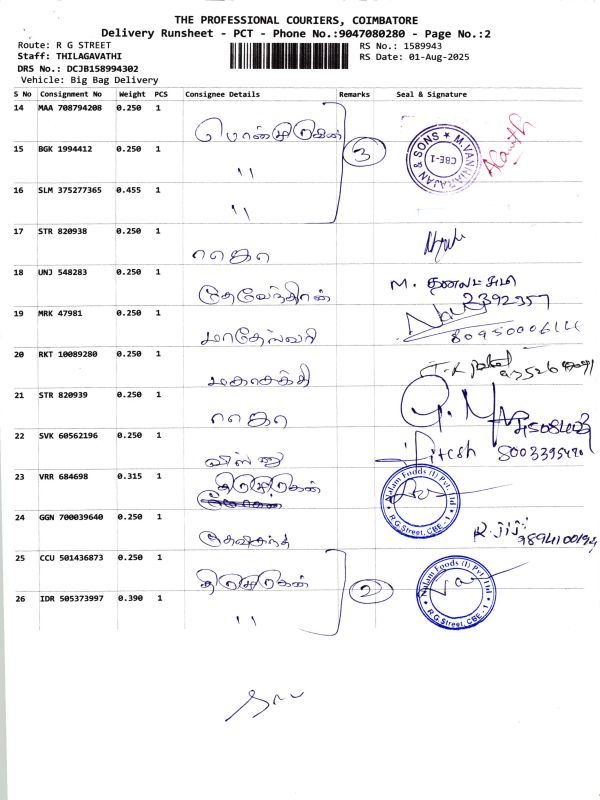 THE PROFESSIONAL COURIERS, COIMBATORE
Delivery Runsheet - PCT - Phone No.:9047080280 - Page No.:2
Route: R G STREET
RS No.: 1589943
Staff: THILAGAVATHI
RS Date: 01-Aug-2025
DRS No.: DCJB158994302
Vehicle: Big Bag Delivery
S No Consignment No Weight PCS Consignee Details Remarks Seal & Signature
14 MAA 708794208 0.250 1
15 BGK 1994412 0.250 1 " 3 M.VANNIARAJAN & SONS CBE-1
16 SLM 375277365 0.455 1 "
17 STR 820938 0.250 1 ராஜா
18 UNJ 548283 0.250 1 தேவேந்திரன் M. தனலட்சுமி
19 MRK 47981 0.250 1 மாதேஸ்வரி
20 RKT 10089280 0.250 1 மகாசக்தி
21 STR 820939 0.250 1 ராஜா
22 SVK 60562196 0.250 1 விஸ்ணு Jitesh 8003395490
23 VRR 684698 0.315 1 Nalam Foods (I) Pvt. Ltd R.G.Street, CBE - 1
24 GGN 700039640 0.250 1 R. Jiji
25 CCU 501436873 0.250 1
26 IDR 505373997 0.390 1 " 2 Nalam Foods (I) Pvt. Ltd R.G.Street, CBE - 1